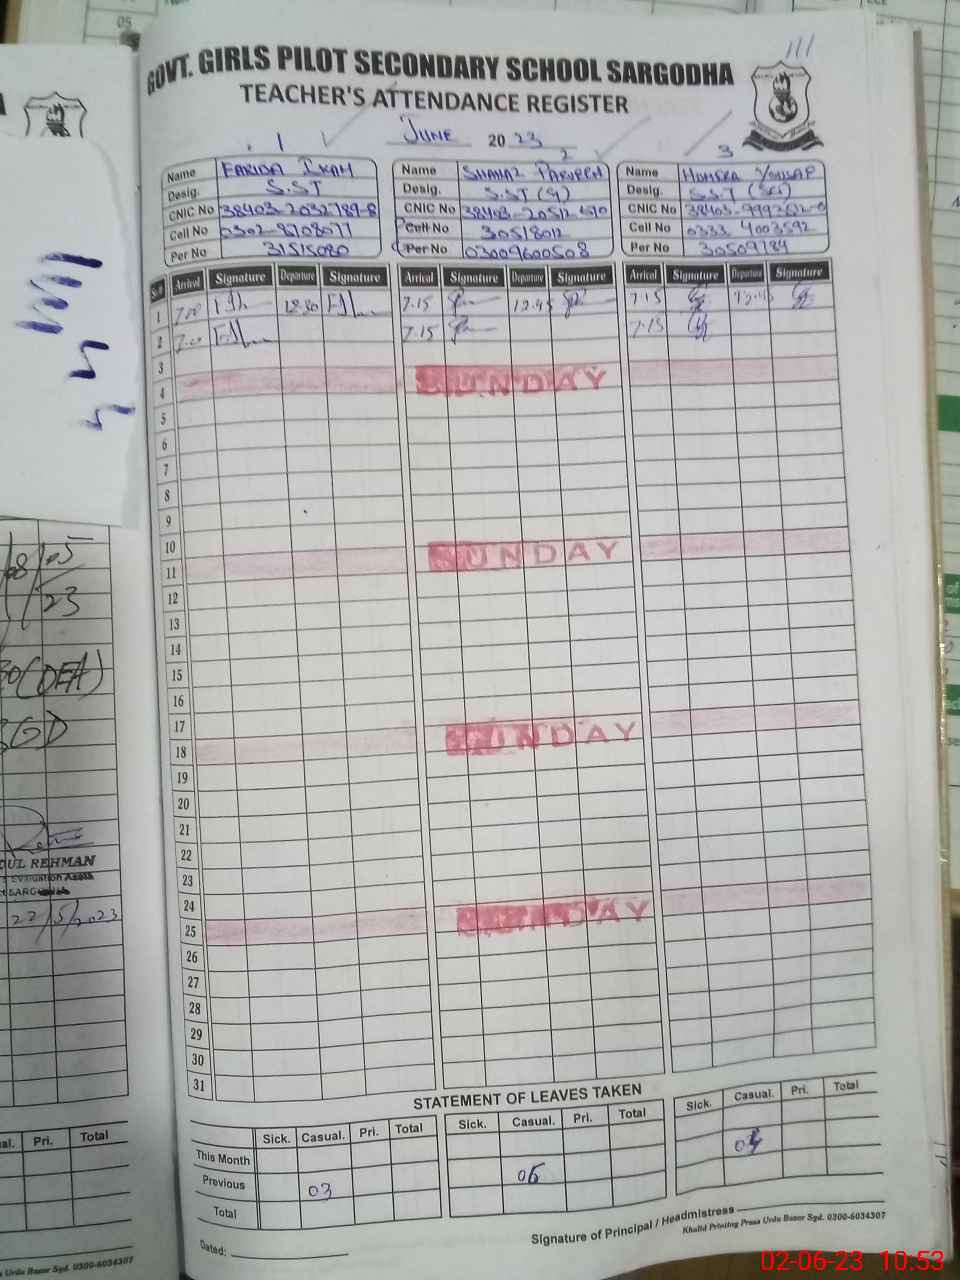 GOVT. GIRLS PILOT SECONDARY SCHOOL SARGODHA
TEACHER'S ATTENDANCE REGISTER
JUNE 2023
1
2
3
Name FARIDA
Desig. S.ST
CNIC No 38403-2032789-8
Cell No 0302-8708077
Per No 31515080
Name SHANAZ PARVEEN
Desig. S.ST (G)
CNIC No
Cell No 30518012
Per No 03009600508
Name HUMERA
Desig. S.S.T (Sci)
CNIC No
Cell No 0333 4003592
Per No 30509784
Sr.# Arrival Signature Departure Signature Arrival Signature Departure Signature Arrival Signature Departure Signature
1 7.00 12.30 7.15 12.45 7.15 12.45
2 7.0 7.15 7.15
3
4 SUNDAY
5
6
7
8
9
10
11 SUNDAY
12
13
14
15
16
17
18 SUNDAY
19
20
21
22
23
24
25 SUNDAY
26
27
28
29
30
31
STATEMENT OF LEAVES TAKEN
Sick. Casual. Pri. Total Sick. Casual. Pri. Total Sick. Casual. Pri. Total
This Month
Previous 03 06
Total
Dated:
Signature of Principal / Headmistress
Khalid Printing Press Urdu Bazar Sgd. 0300-6034307
08/05
23
(DEA)
SGD
OUL REHMAN
22/5/2023
al. Pri. Total
s Urdu Bazar Sgd. 0300-6034307
05
02-06-23 10:53